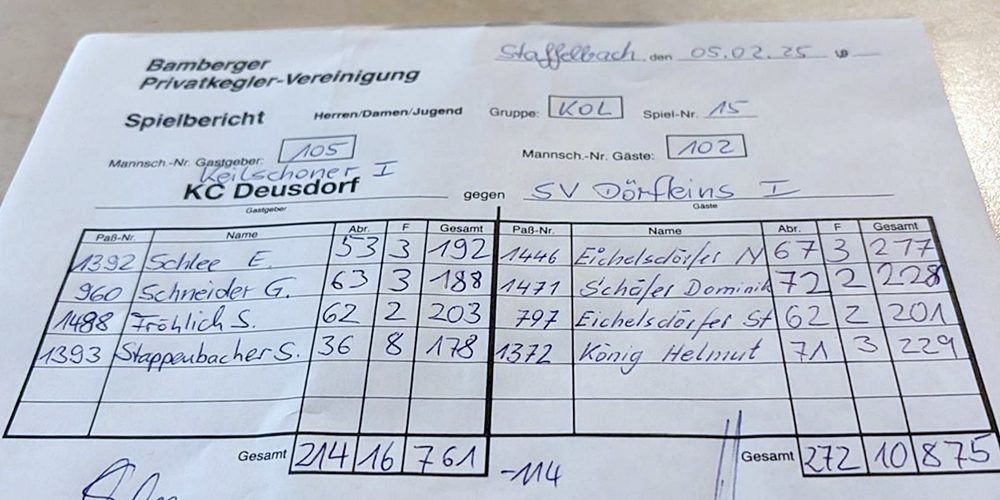 Bamberger
Privatkegler-Vereinigung
Staffelbach, den 05.02.25
Spielbericht Herren/Damen/Jugend Gruppe: KOL Spiel-Nr. 15
Mannsch.-Nr. Gastgeber: 105 Mannsch.-Nr. Gäste: 102
Keilschoner I
KC Deusdorf gegen SV Dörfleins I
Gastgeber Gäste
Paß-Nr. Name Abr. F Gesamt Paß-Nr. Name Abr. F Gesamt
1392 Schlee E. 53 3 192 1446 Eichelsdörfer N 67 3 217
960 Schneider G. 63 3 188 1471 Schäfer Dominik 72 2 228
1488 Fröhlich S. 62 2 203 797 Eichelsdörfer St 62 2 201
1393 Stappenbacher S. 36 8 178 1372 König Helmut 71 3 229
Gesamt 214 16 761 -114 Gesamt 272 10 875